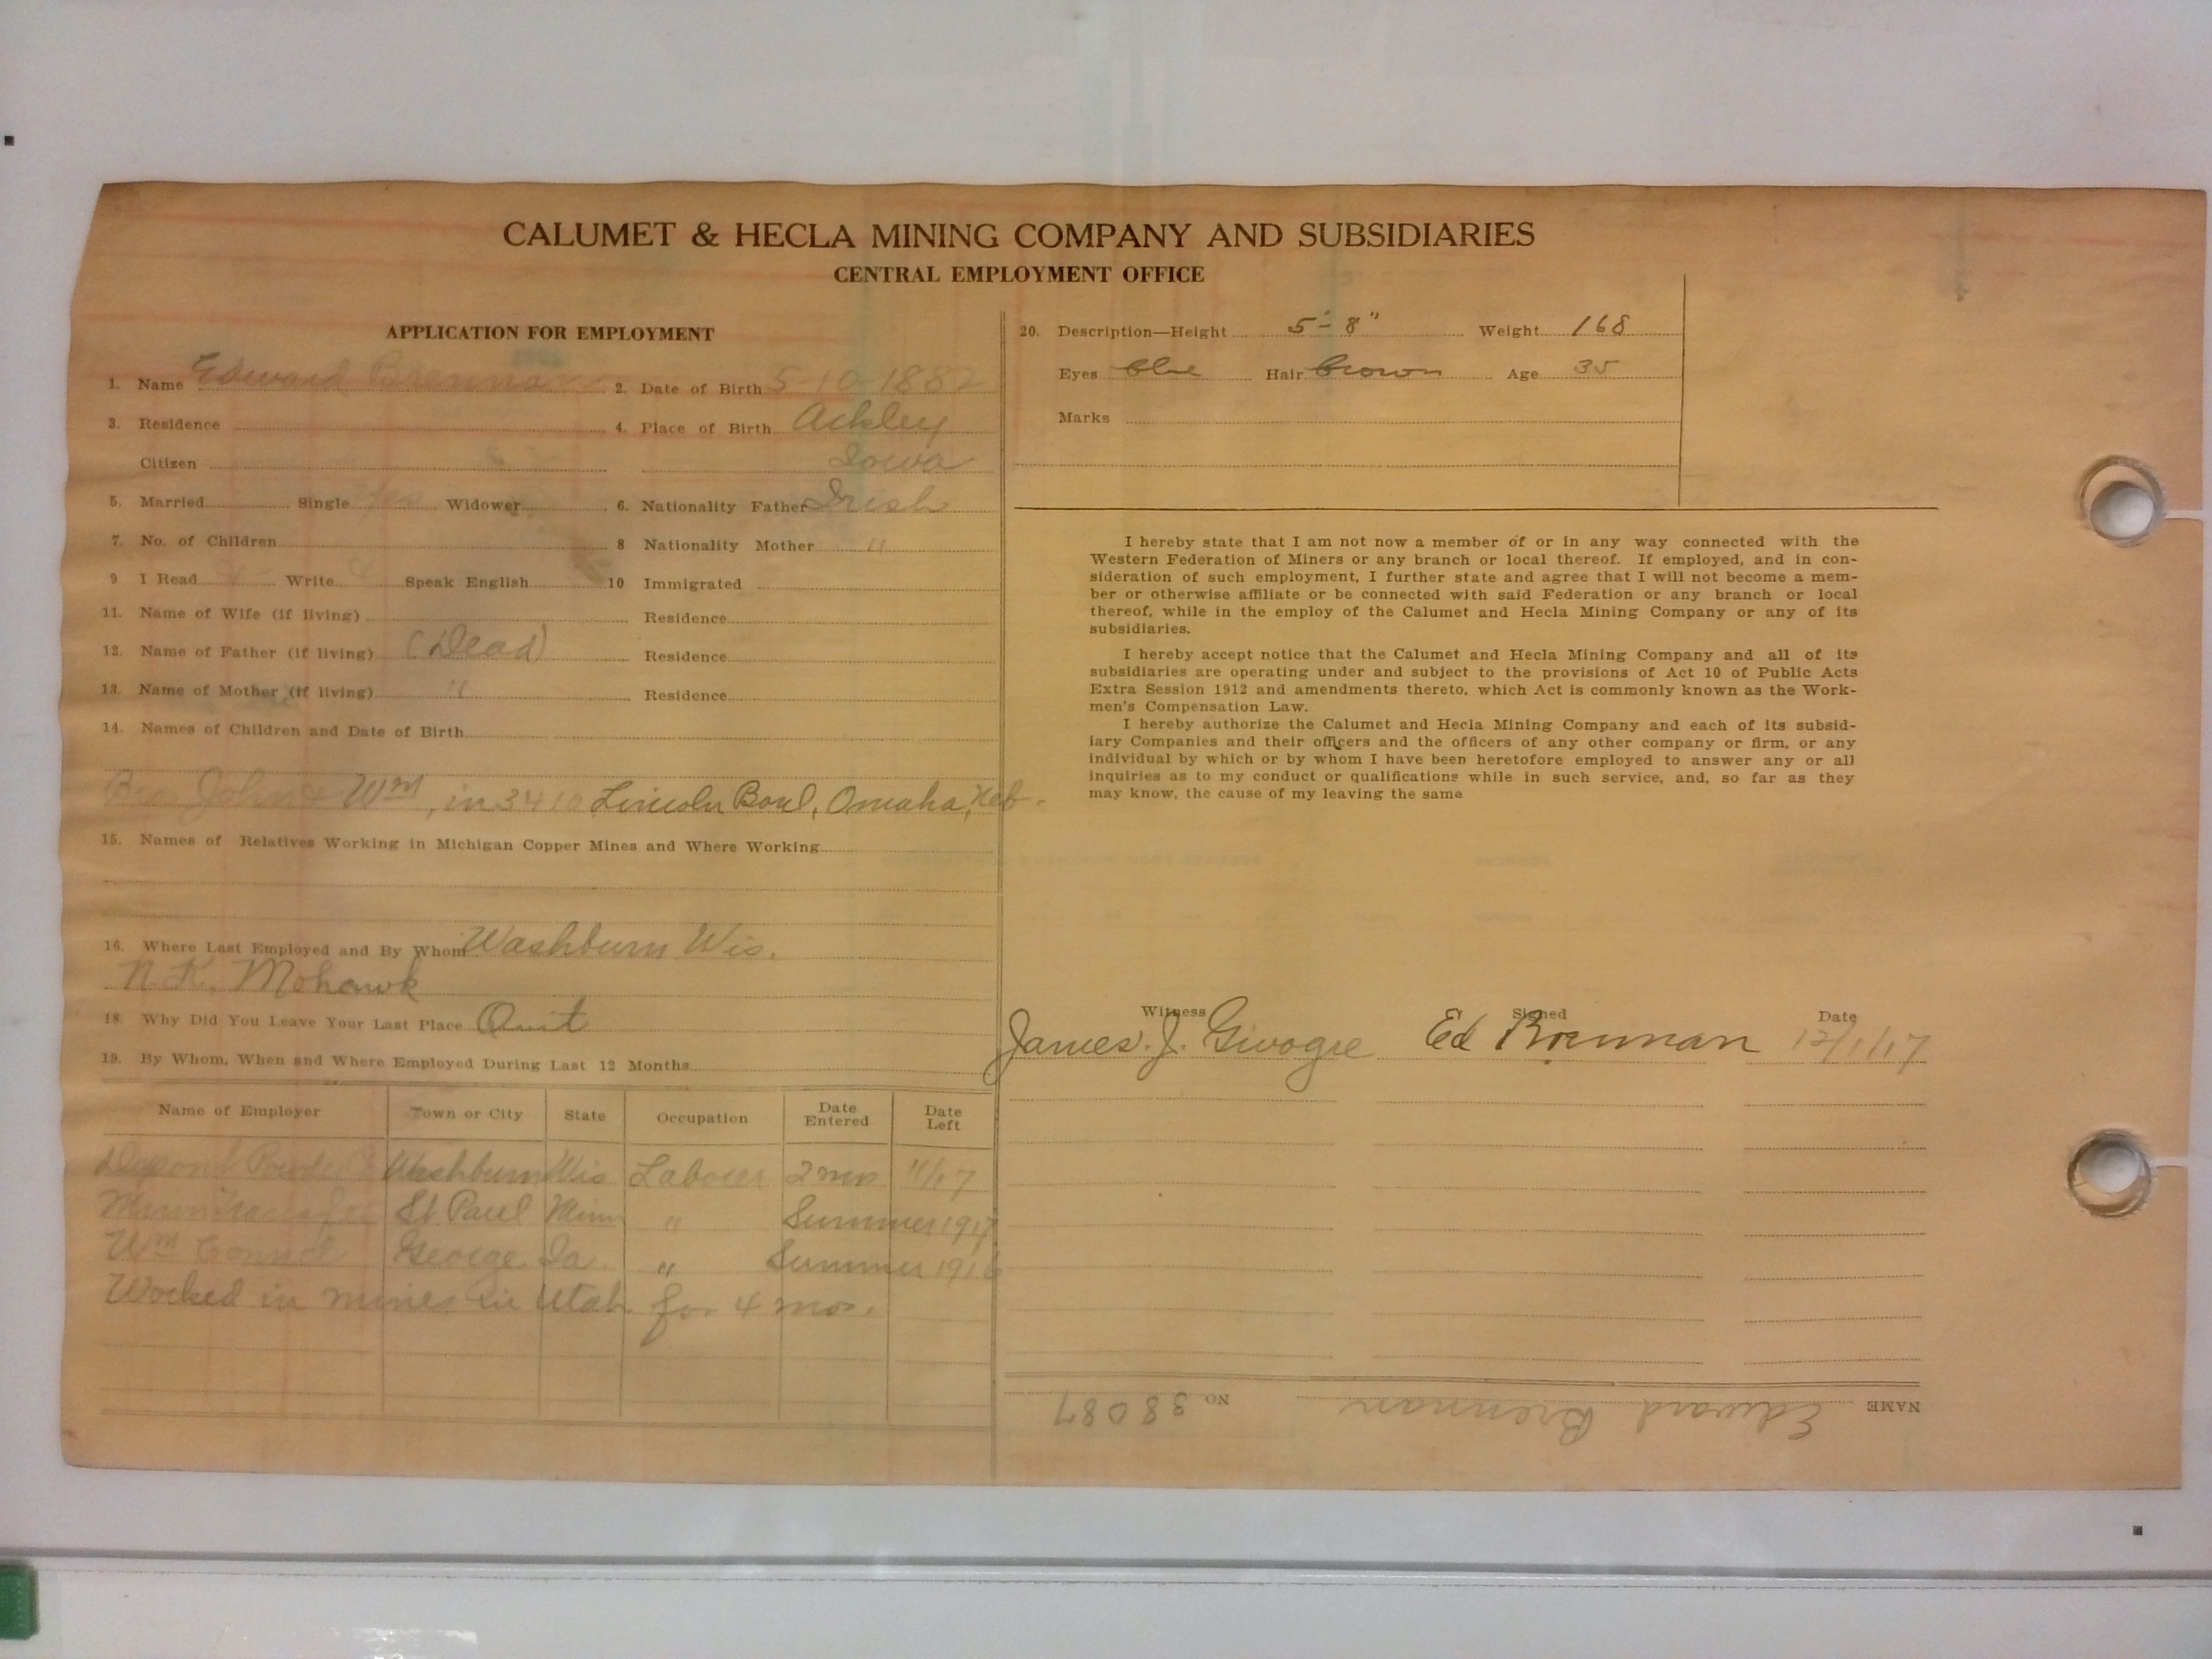 CALUMET & HECLA MINING COMPANY AND SUBSIDIARIES
CENTRAL EMPLOYMENT OFFICE
APPLICATION FOR EMPLOYMENT
1. Name Edward Brennan 2. Date of Birth 5-10-1882
3. Residence 4. Place of Birth Ackley
Citizen Iowa
5. Married Single Yes Widower 6. Nationality Father Irish
7. No. of Children 8 Nationality Mother "
9 I Read Write Speak English 10 Immigrated
11. Name of Wife (if living) Residence
12. Name of Father (if living) (Dead) Residence
13. Name of Mother (if living) " Residence
14. Names of Children and Date of Birth
Bro John & Wm, in 3410 Lincoln Boul, Omaha, Neb.
15. Names of Relatives Working in Michigan Copper Mines and Where Working
16. Where Last Employed and By Whom Washburn Wis.
N.K. Mohawk
18. Why Did You Leave Your Last Place Quit
19. By Whom, When and Where Employed During Last 12 Months
Name of Employer Town or City State Occupation Date Entered Date Left
Dupont Powder Co Washburn Wis Laborer 2 mos 11/17
Minn Transfer St. Paul Minn " Summer 1917
Wm George Ia. " Summer 1916
Worked in mines in Utah for 4 mos.
20. Description—Height 5'-8" Weight 168
Eyes blue Hair brown Age 35
Marks
I hereby state that I am not now a member of or in any way connected with the
Western Federation of Miners or any branch or local thereof. If employed, and in con-
sideration of such employment, I further state and agree that I will not become a mem-
ber or otherwise affiliate or be connected with said Federation or any branch or local
thereof, while in the employ of the Calumet and Hecla Mining Company or any of its
subsidiaries.
I hereby accept notice that the Calumet and Hecla Mining Company and all of its
subsidiaries are operating under and subject to the provisions of Act 10 of Public Acts
Extra Session 1912 and amendments thereto, which Act is commonly known as the Work-
men's Compensation Law.
I hereby authorize the Calumet and Hecla Mining Company and each of its subsid-
iary Companies and their officers and the officers of any other company or firm, or any
individual by which or by whom I have been heretofore employed to answer any or all
inquiries as to my conduct or qualifications while in such service, and, so far as they
may know, the cause of my leaving the same
Witness Signed Date
James. J. Ed Brennan 12/1/17
NAME Edward Brennan NO 38087